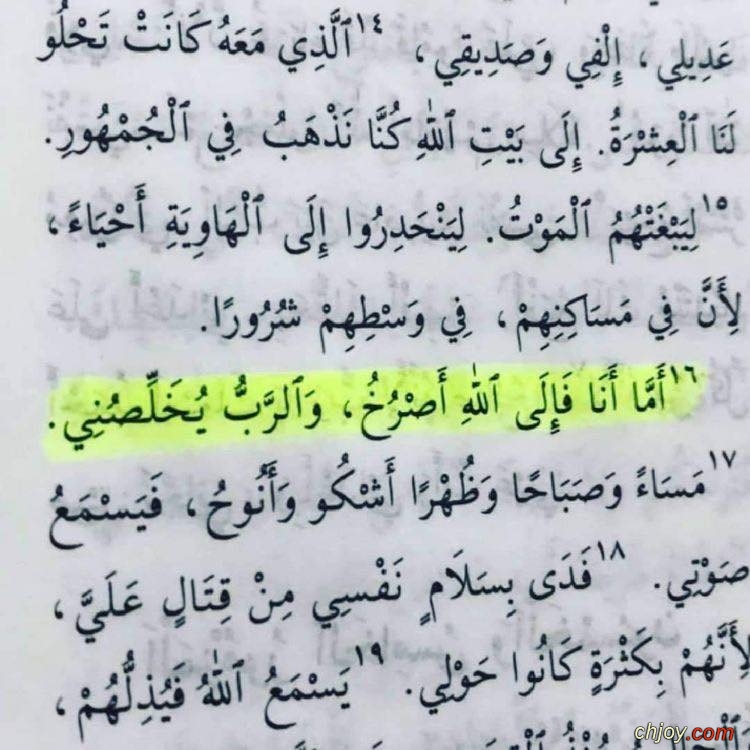 عَدِيلِي، إِلْفِي وَصَدِيقِي، ١٤ ٱلَّذِي مَعَهُ كَانَتْ تَحْلُو
لَنَا ٱلْعِشْرَةُ. إِلَى بَيْتِ ٱللهِ كُنَّا نَذْهَبُ فِي ٱلْجُمْهُورِ.
١٥ لِيَبْغَتْهُمُ ٱلْمَوْتُ. لِيَنْحَدِرُوا إِلَى ٱلْهَاوِيَةِ أَحْيَاءً،
لِأَنَّ فِي مَسَاكِنِهِمْ، فِي وَسْطِهِمْ شُرُورًا.
١٦ أَمَّا أَنَا فَإِلَى ٱللهِ أَصْرُخُ، وَٱلرَّبُّ يُخَلِّصُنِي.
١٧ مَسَاءً وَصَبَاحًا وَظُهْرًا أَشْكُو وَأَنُوحُ، فَيَسْمَعُ
صَوْتِي. ١٨ فَدَى بِسَلَامٍ نَفْسِي مِنْ قِتَالٍ عَلَيَّ،
لِأَنَّهُمْ بِكَثْرَةٍ كَانُوا حَوْلِي. ١٩ يَسْمَعُ ٱللهُ فَيُذِلُّهُمْ،
chjoy.com